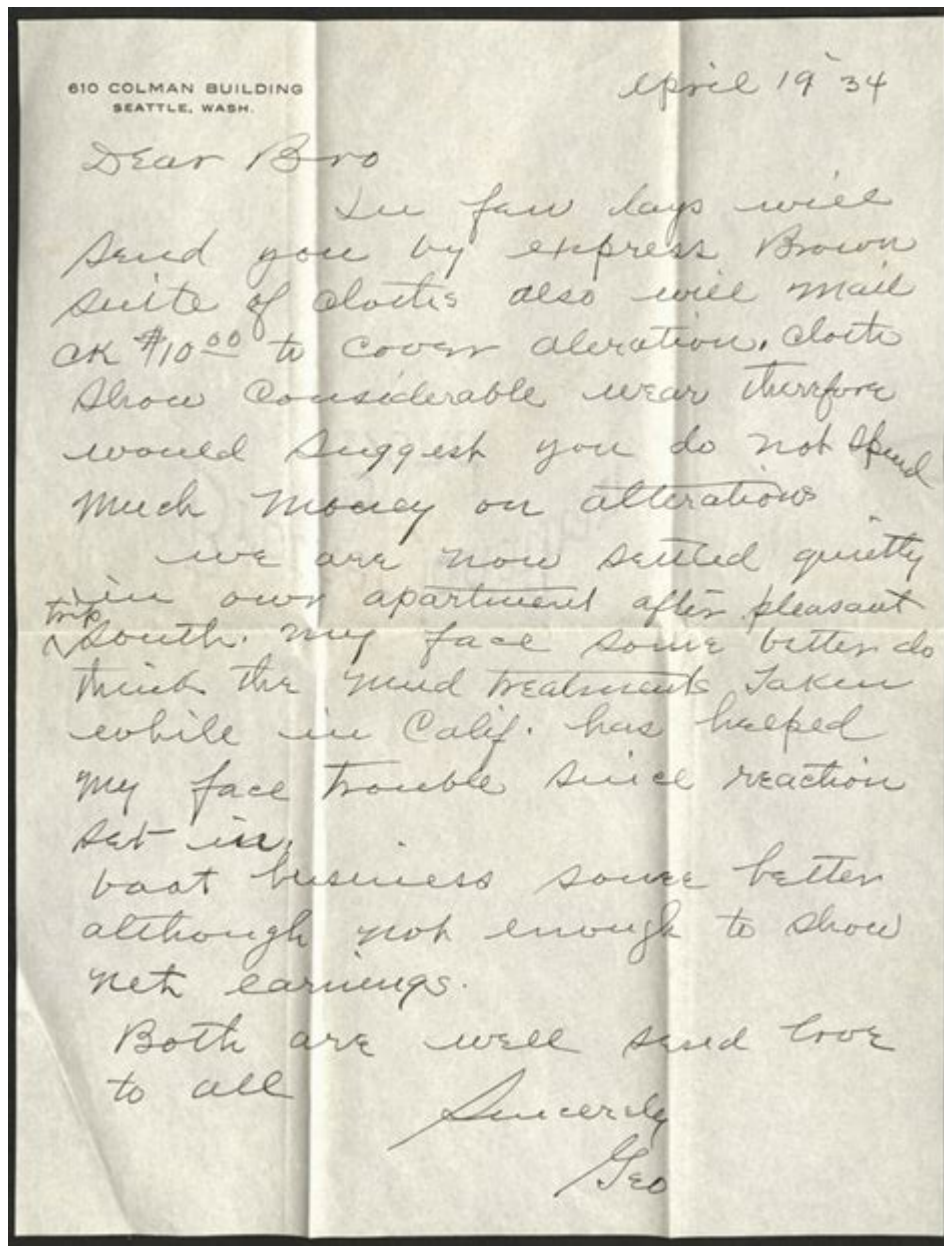 610 COLMAN BUILDING
SEATTLE, WASH.
April 19 34
Dear Bro
In few days will
send you by express Brown
suite of cloths also will mail
ck $10.00 to cover aleration. cloth
show considerable wear therefore
would suggest you do not spend
much money on alterations
we are now settled quietly
in own apartment after pleasant
trip
south. my face some better do
think the mud treatments Taken
while in Calif. has helped
my face trouble since reaction
set in.
boat business some better
although not enough to show
net earnings.
Both are well send love
to all
Sincerely
Geo